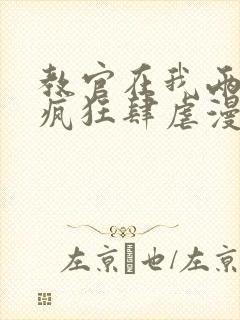 教官在我两
疯狂肆虐漫
左京 也/左京